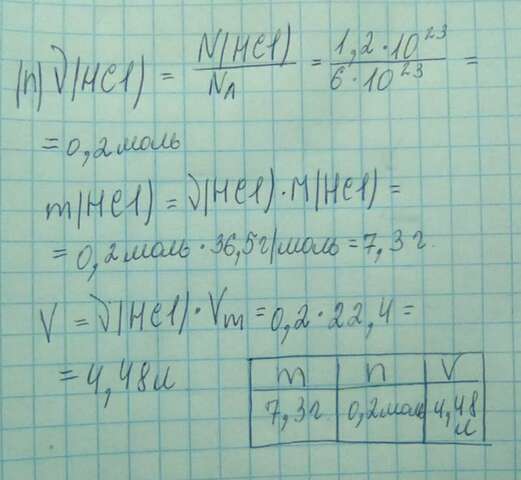 (n) ν(HCl) = N(HCl) / N_A = 1,2·10²³ / 6·10²³ =
= 0,2 моль
m(HCl) = ν(HCl)·M(HCl) =
= 0,2 моль · 36,5 г/моль = 7,3 г.
V = ν(HCl)·Vm = 0,2·22,4 =
= 4,48 л
m n V
7,3 г. 0,2 моль 4,48 л